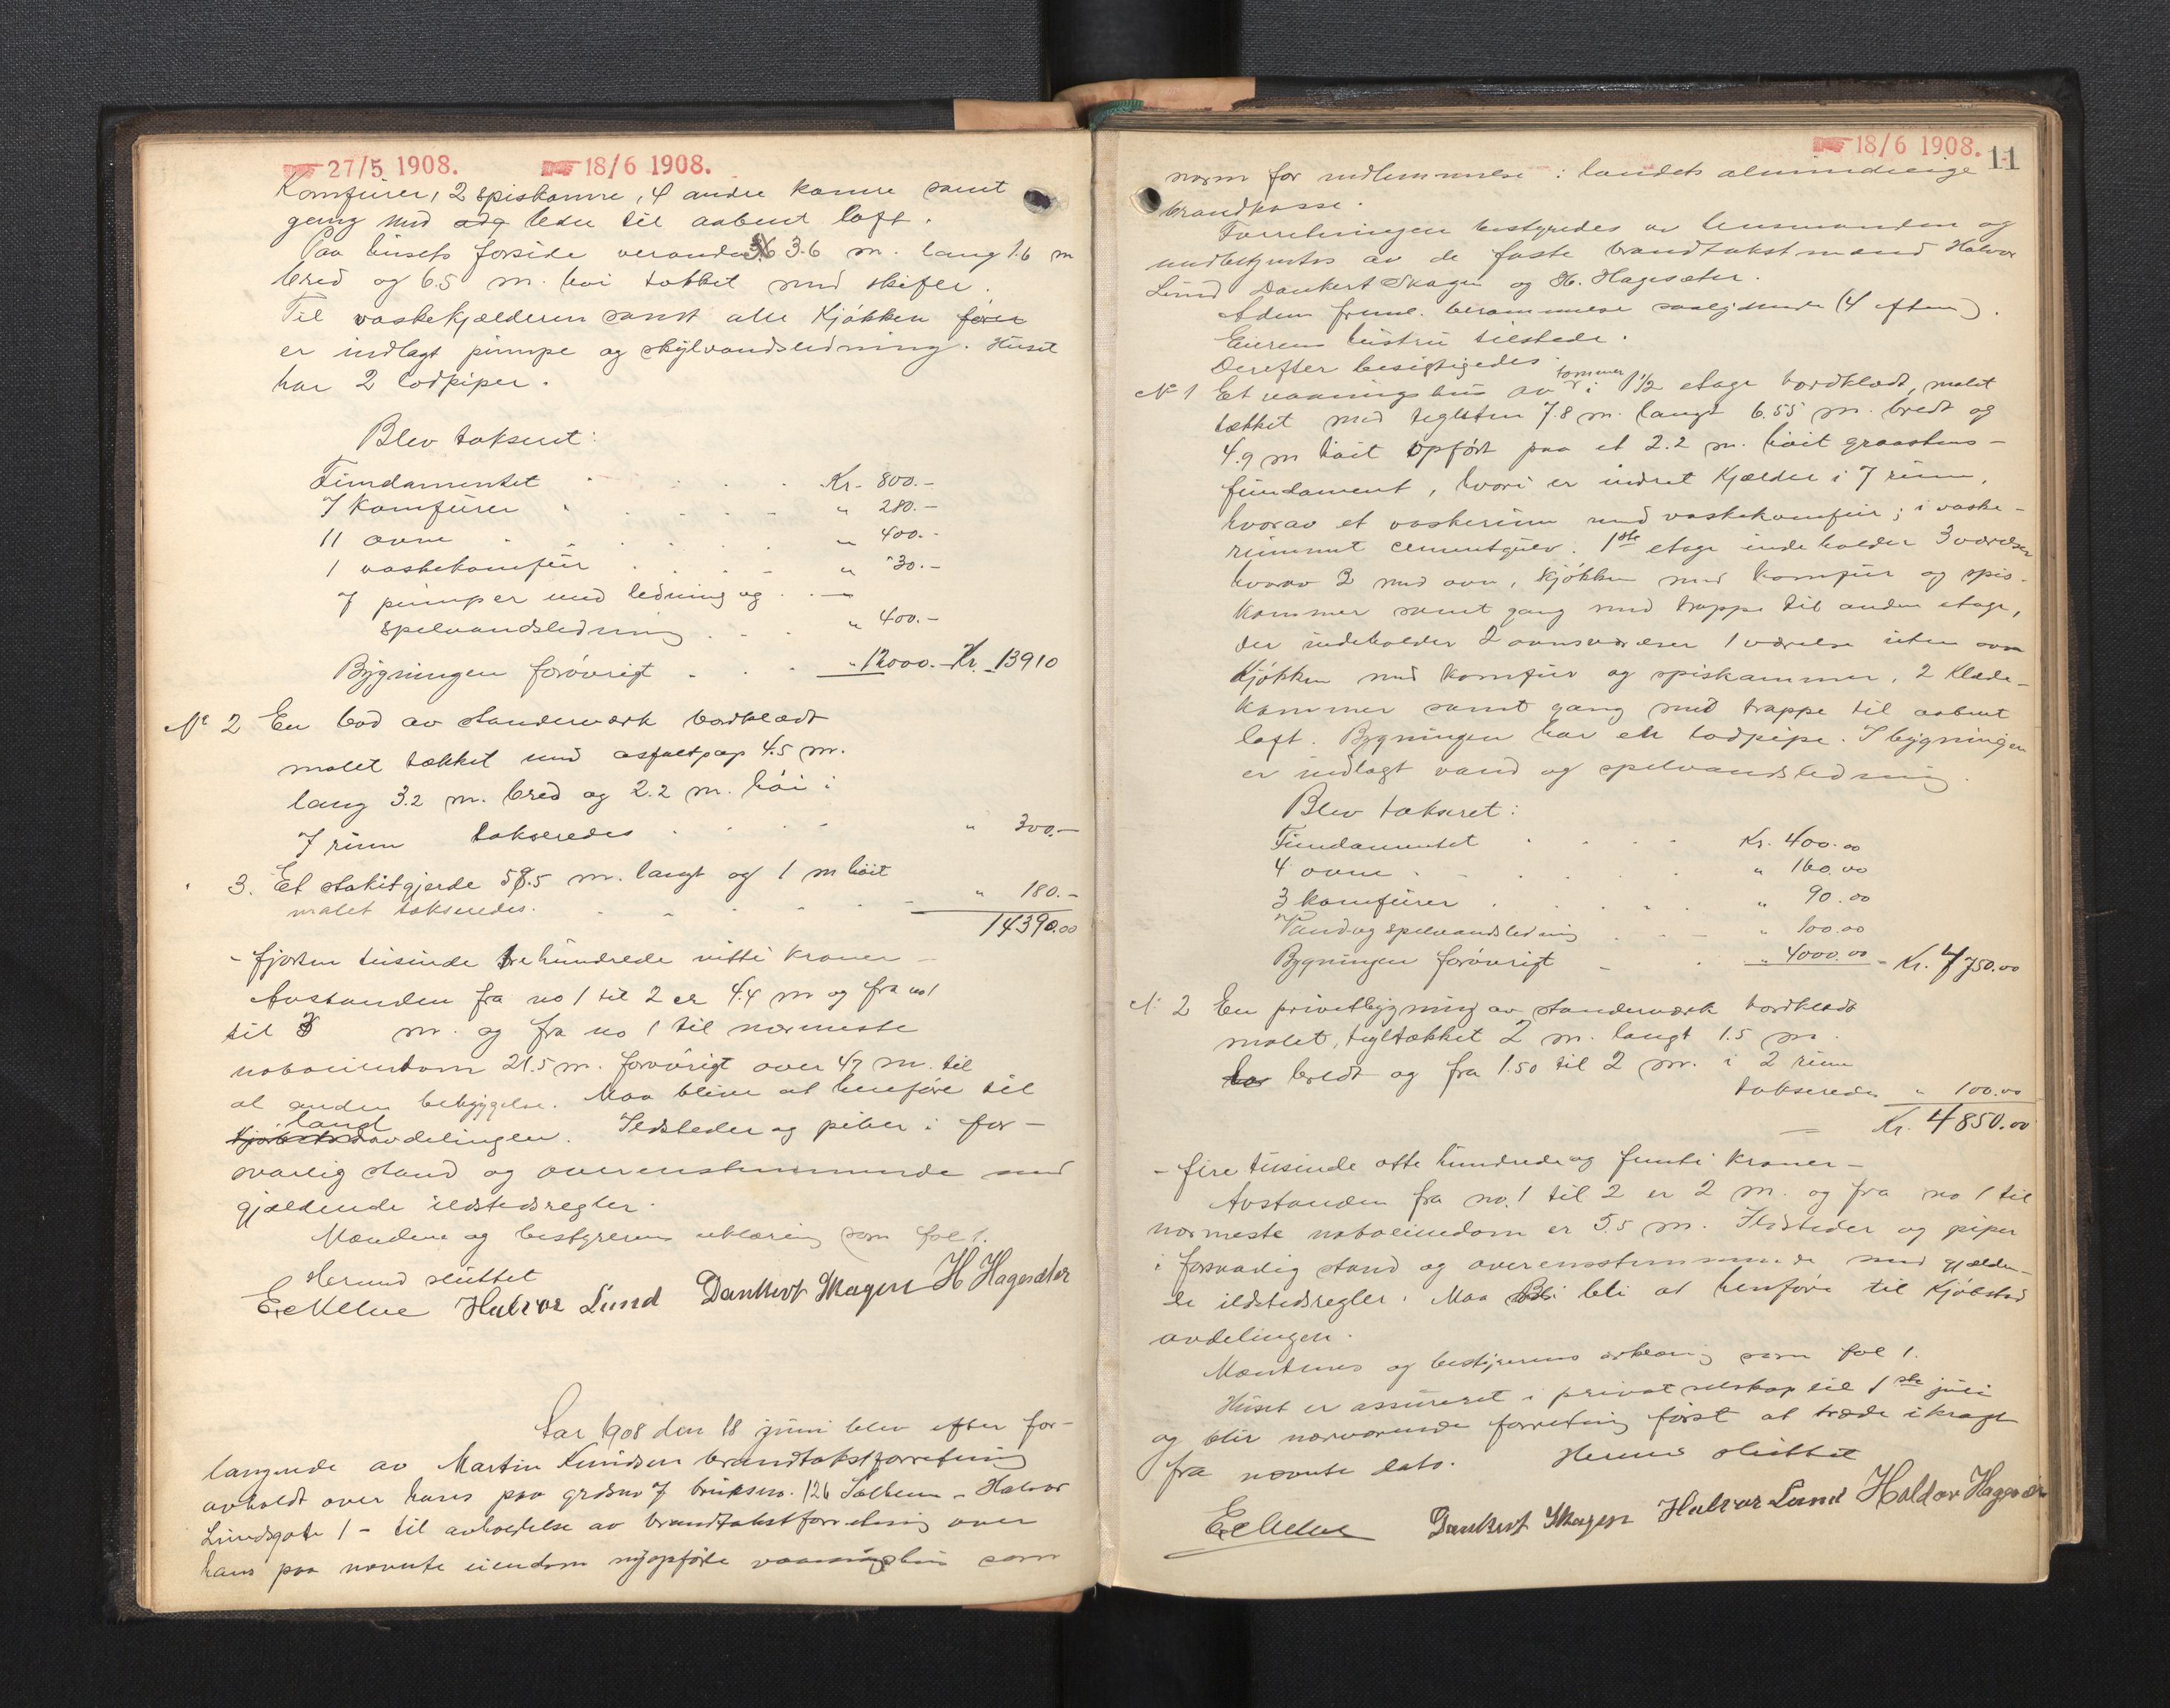 27/5 1908. 18/6 1908.
Komfurer, 2 spiskamre, 4 andre kamre samt
gang med adg leder til aabent loft.
Paa husets forside veranda 3.6 m. lang 1.6 m
bred og 6.5 m. høi tækket med skifer.
Til vaskekjælderen samt alle kjøkken fører
er indlagt pumpe og skylvandsledning. Huset
har 2 lodpiper.
Blev takseret:
Fundamentet Kr. 800.-
7 komfurer " 280.-
11 ovne " 400.-
1 vaskekomfur " 30.-
7 pumper med ledning og
spelvandsledning " 400.-
Bygningen forøvrigt " 12000.- Kr. 13910
No 2 En bod av standerværk bordklædt
malet tækket med asfaltpap 4.5 m.
lang 3.2 m. bred og 2.2 m. høi i
7 rum takseredes " 300.-
" 3. Et stakitgjerde 58.5 m. langt og 1 m høit
malet takseredes. " 180.-
14390.00
- fjorten tusinde tre hundrede nitti kroner -
Avstanden fra no 1 til 2 er 4.4 m og fra no 1
til 3 m. og fra no 1 til nærmeste
naboeiendom 21.5 m. forøvrigt over 47 m. til
al anden bebyggelse. Maa blive at henføre til
land
Kjøbstadavdelingen. Ildsteder og piber i for-
svarlig stand og overensstemmende med
gjældende ildstedsregler.
Mændene og bestyrerens erklæring som fol 1.
Hermed sluttet
Halvor Lund Dankert Skagen H Hagesæter
Aar 1908 den 18 juni blev efter for-
langende av Martin Knudsen brandtakstforretning
avholdt over hans paa grdsno 7 bruksno. 126 Solheim - Halvor
Lundsgate 1 - til avholdelse av brandtakstforretning over
hans paa nævnte eiendom nyopførte vaaningshus som
18/6 1908. 11
norm for indlemmelse i landets almindelige
brandkasse.
Forretningen bestyredes av lensmanden og
medbetjentes av de faste brandtakstmænd Halvor
Lund Dankert Skagen og H. Hagesæter.
Adm freml. berammelse saalydende (4 eftm).
Eierens hustru tilstede.
Derefter besigtigedes.
No 1 Et vaaningshus av tømmer i 1 1/2 etage bordklædt, malet
tækket med teglsten 7.8 m. langt 6.55 m. bredt og
4.9 m høit opført paa et 2.2 m. høit graastens-
fundament, hvori er indret kjælder i 7 rum,
hvorav et vaskerum med vaskekomfur; i vaske-
rummet cementgulv. 1ste etage indeholder 3 værelser
hvorav 2 med ovn, kjøkken med komfur og spis-
kammer samt gang med trappe til anden etage,
der indeholder 2 ovnsværelser 1 værelse uten ovn
Kjøkken med komfur og spiskammer, 2 klæde-
kammer samt gang med trappe til aabent
loft. Bygningen har en lodpipe. I bygningen
er indlagt vand og spelvandsledning.
Blev takseret:
Fundamentet Kr. 400.00
4 ovne " 160.00
3 komfurer " 90.00
Vand og spelvandsledning " 100.00
Bygningen forøvrigt " 4000.00 - Kr. 4750.00
No 2 En privetbygning av standerværk bordklædt
malet, tegltækket 2 m. langt 1.5 m.
bredt og fra 1.50 til 2 m. i 2 rum
takseredes " 100.00
Kr. 4850.00
- fire tusinde otte hundrede og femti kroner -
Avstanden fra no. 1 til 2 er 2 m. og fra no 1 til
nærmeste naboeiendom er 5.5 m. Ildsteder og piper
i forsvarlig stand og overensstemmende med gjælden-
de ildstedsregler. Maa bli at henføre til Kjøbstad
avdelingen.
Mændenes og bestyrerens erklæring som fol 1.
Huset er assureret i privat selskap til 1ste juli
og blir nærværende forretning først at træde i kraft
fra nævnte dato. Hermed sluttet
Dankert Skagen Halvor Lund Haldor Hagesæter